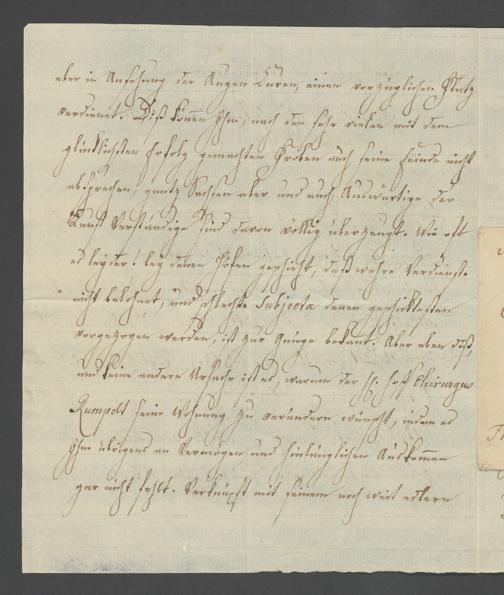 aber in Ansehung der Augen Curen, einen vorzüglichen Platz
verdienet. Diß können Ihm, nach den sehr vielen mit dem
glücklichsten Erfolg gemachten Proben auch seine Feinde nicht
absprechen, gantz Sachsen aber und auch Auswärtige der
Kunst Verständige sind davon völlig überzeugt. Wie oft
es leyder! bey denen Höfen geschieht, daß wahre Verdienste
nicht belohnet, und schlechte Subjecta denen geschicktesten
vorgezogen werden, ist zur Gnüge bekant. Aber eben diß,
und keine andere Ursache ist es, warum der H. Hof Chirurgus
Rumpelt seine Wohnung zu verändern wünscht, indem es
Ihm übrigens an Vermögen und hinlänglichen Auskommen
gar nicht fehlt. Verknüpft mit seinem noch weit edlern